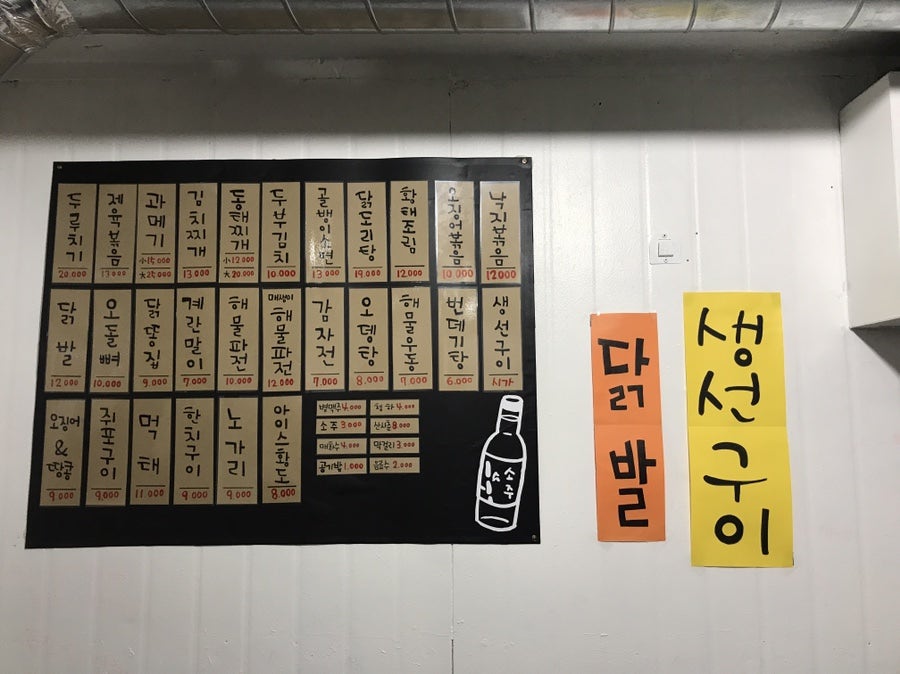 두루치기 20.000
제육볶음 13.000
과메기 小15.000 大25.000
김치찌개 13.000
동태찌개 小12.000 大20.000
두부김치 10.000
골뱅이소면 13.000
닭도리탕 19.000
황태조림 12.000
오징어볶음 10.000
낙지볶음 12000
닭발 12.000
오돌뼈 10.000
닭똥집 9.000
계란말이 7.000
해물파전 10.000
매생이해물파전 12.000
감자전 7.000
오뎅탕 8.000
해물우동 9.000
번데기탕 6.000
생선구이 시가
오징어&땅콩 9.000
쥐포구이 9.000
먹태 11.000
한치구이 9.000
노가리 9.000
아이스황도 8.000
병맥주 4.000
청하 4.000
소주 3.000
산사춘 8.000
매화수 4.000
막걸리 3.000
공기밥 1.000
음료수 2.000
소주
닭발
생선구이